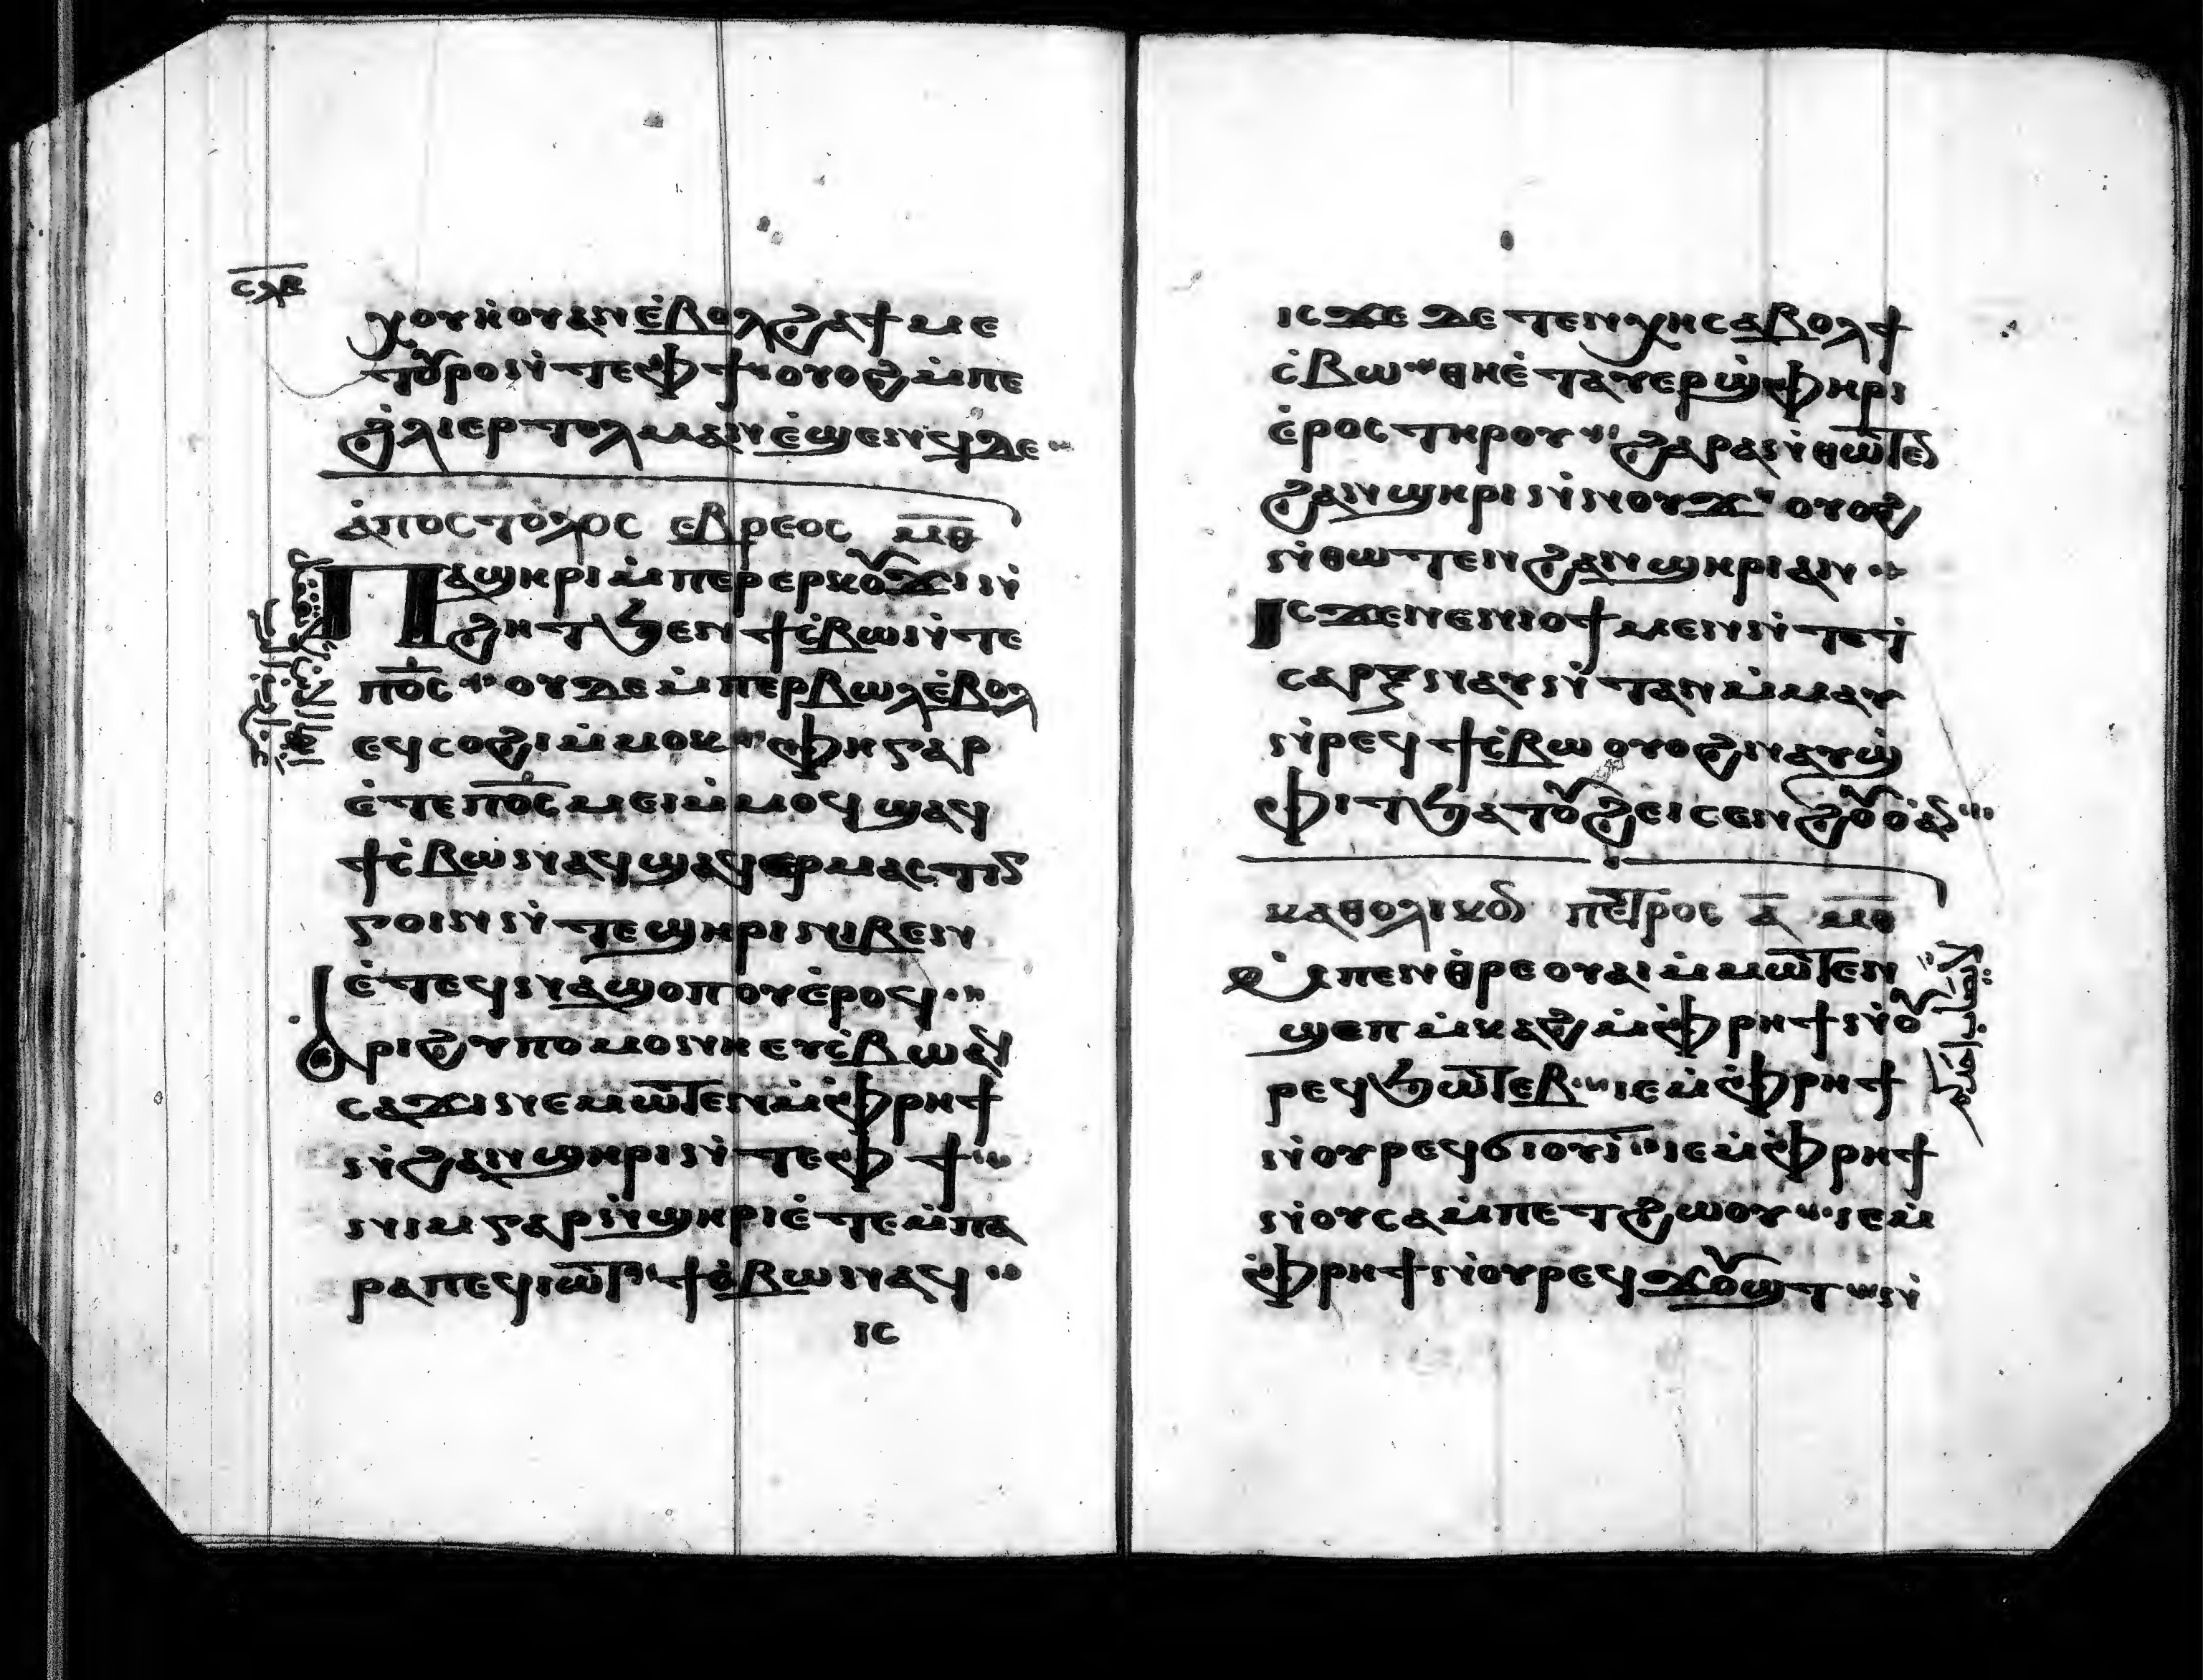 ⲥⲗⲃ
ⲭⲟⲩⲏⲟⲩ ⲁⲛ ⲉ̇ⲃⲟⲗ ϩⲁ ϯⲙⲉ
ⲧⲟⲩⲣⲟ ⲛ̇ⲧⲉ ⲫϯ ⲟⲩⲟϩ ⲙ̇ⲡⲉ
ϩ̇ⲗⲓ ⲉⲣⲧⲟⲗⲙⲁⲛ ⲉ̇ϣⲉⲛϥ ⲇⲉ
ⲁ̇ⲡⲟⲥⲧⲟⲗⲟⲥ ⲉⲃⲣⲉⲟⲥ ⲙⲑ
Ⲡⲁϣⲏⲣⲓ ⲙ̇ⲡⲉⲣⲉⲣⲕⲟⲩϫⲓ ⲛ̇
ϩⲏⲧ ϧⲉⲛ ϯⲥ̇ⲃⲱ ⲛ̇ⲧⲉ
ⲡⲟ̅ⲥ̅ ⲟⲩⲇⲉ ⲙ̇ⲡⲉⲣⲃⲱⲗ ⲉ̇ⲃⲟⲗ
ⲉϥⲥⲟϩⲓ ⲙ̇ⲙⲟⲕ ⲫⲏ ⲅⲁⲣ
ⲉ̇ⲧⲉ ⲡⲟ̅ⲥ̅ ⲙⲉⲓ ⲙ̇ⲙⲟϥ ϣⲁϥ
ϯⲥ̇ⲃⲱ ⲛⲁϥ ϣⲁϥⲉⲣⲙⲁⲥⲧⲓ
ⲅⲟⲓⲛ ⲛ̇ⲧⲉ ϣⲏⲣⲓ ⲛⲓⲃⲉⲛ
ⲉ̇ⲧⲉϥⲛⲁϣⲟⲡⲟⲩ ⲉ̇ⲣⲟϥ
ⲁⲣⲓϩⲩⲡⲟⲙⲟⲛⲏ ⲉⲩⲥ̇ⲃⲱ ⲁϥ
ⲥⲁϫⲓ ⲛⲉⲙⲱⲧⲉⲛ ⲙ̇ⲫⲣⲏϯ
ⲛ̇ϩⲁⲛϣⲏⲣⲓ ⲛ̇ⲧⲉ ⲫϯ
ⲛⲓⲙ ⲅⲁⲣ ⲛ̇ϣⲏⲣⲓ ⲉ̇ⲧⲉ ⲙ̇ⲡⲁ
ⲣⲁ ⲡⲉϥⲓⲱⲧ ϯⲥ̇ⲃⲱ ⲛⲁϥ
ⲓⲥ
ⲓⲥϫⲉ ⲇⲉ ⲧⲉⲛⲭⲏ ⲥⲁⲃⲟⲗ ϯ
ⲥ̇ⲃⲱ ⲑⲏ ⲉ̇ⲧⲁⲩⲉⲣϣ̇ⲫⲏⲣⲓ
ⲉ̇ⲣⲟⲥ ⲧⲏⲣⲟⲩ ϩⲁⲣⲁ ⲛ̇ⲑⲱⲧⲉⲛ
ϩⲁⲛϣⲏⲣⲓ ⲛ̇ⲛⲟⲩϫ ⲟⲩⲟϩ
ⲛ̇ⲑⲱⲧⲉⲛ ϩⲁⲛϣⲏⲣⲓ ⲁⲛ
Ⲓⲥϫⲉ ⲛⲉⲛⲓⲟϯ ⲙⲉⲛ ⲛ̇ⲧⲉ ϯ
ⲥⲁⲣⲝ ⲛⲁⲩⲛ̇ⲧⲁⲛ ⲙ̇ⲙⲁⲩ
ⲛ̇ⲣⲉϥϯⲥ̇ⲃⲱ ⲟⲩⲟϩ ⲛⲁⲩϣ̇
ⲫⲓⲧ ϧⲁⲧⲟⲩϩⲏ ⲓⲥⲉⲛ ϩⲟⲩⲟ̇ ⲁⲛ
ⲕⲁⲑⲟⲗⲓⲕⲟⲛ ⲡⲉⲧⲣⲟⲥ ⲁ̅ ⲙⲑ
Ⲙ̇ⲡⲉⲛⲑⲣⲉ ⲟⲩⲁⲓ ⲙ̇ⲙⲱⲧⲉⲛ
ϣⲉⲡ ⲙ̇ⲕⲁϩ ⲙ̇ⲫⲣⲏϯ ⲛ̇ⲟⲩ
ⲣⲉϥϧⲱⲧⲉⲃ ⲓⲉ ⲙ̇ⲫⲣⲏϯ
ⲛ̇ⲟⲩⲣⲉϥϭⲓⲟⲩⲓ̇ ⲓⲉ ⲙ̇ⲫⲣⲏϯ
ⲛ̇ⲟⲩⲥⲁⲙ̇ⲡⲉⲧϩⲱⲟⲩ ⲓⲉ ⲙ̇
ⲫⲣⲏϯ ⲛ̇ⲟⲩⲣⲉϥϫⲟⲩϣⲧ ⲛ̇